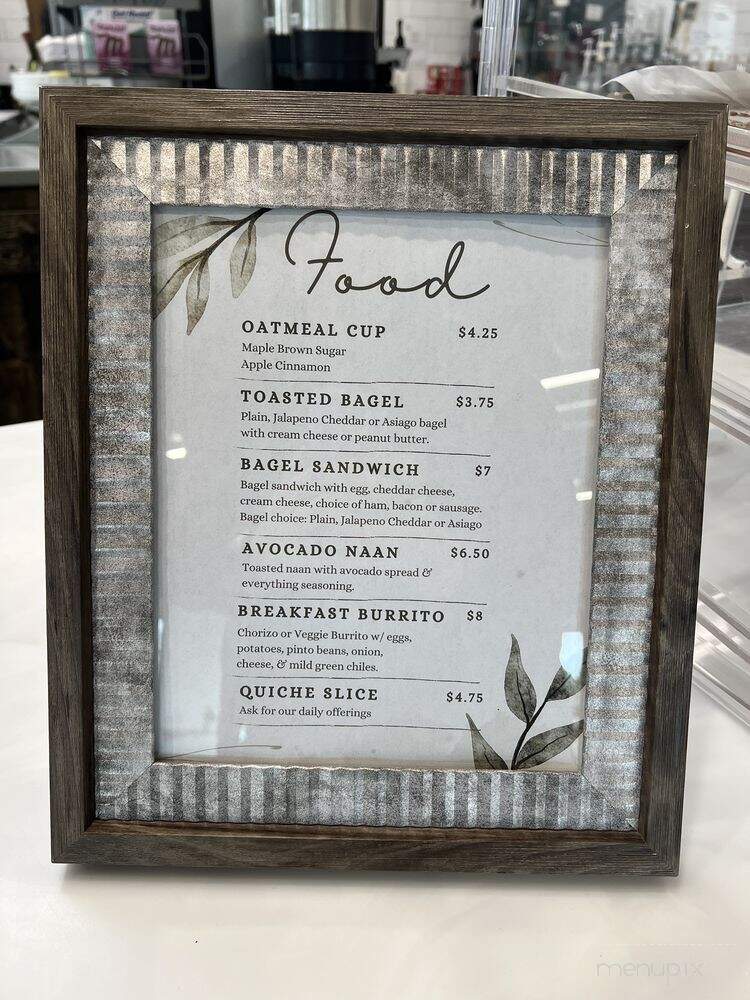 Food
OATMEAL CUP $4.25
Maple Brown Sugar
Apple Cinnamon
TOASTED BAGEL $3.75
Plain, Jalapeno Cheddar or Asiago bagel
with cream cheese or peanut butter.
BAGEL SANDWICH $7
Bagel sandwich with egg, cheddar cheese,
cream cheese, choice of ham, bacon or sausage.
Bagel choice: Plain, Jalapeno Cheddar or Asiago
AVOCADO NAAN $6.50
Toasted naan with avocado spread &
everything seasoning.
BREAKFAST BURRITO $8
Chorizo or Veggie Burrito w/ eggs,
potatoes, pinto beans, onion,
cheese, & mild green chiles.
QUICHE SLICE $4.75
Ask for our daily offerings
menupix